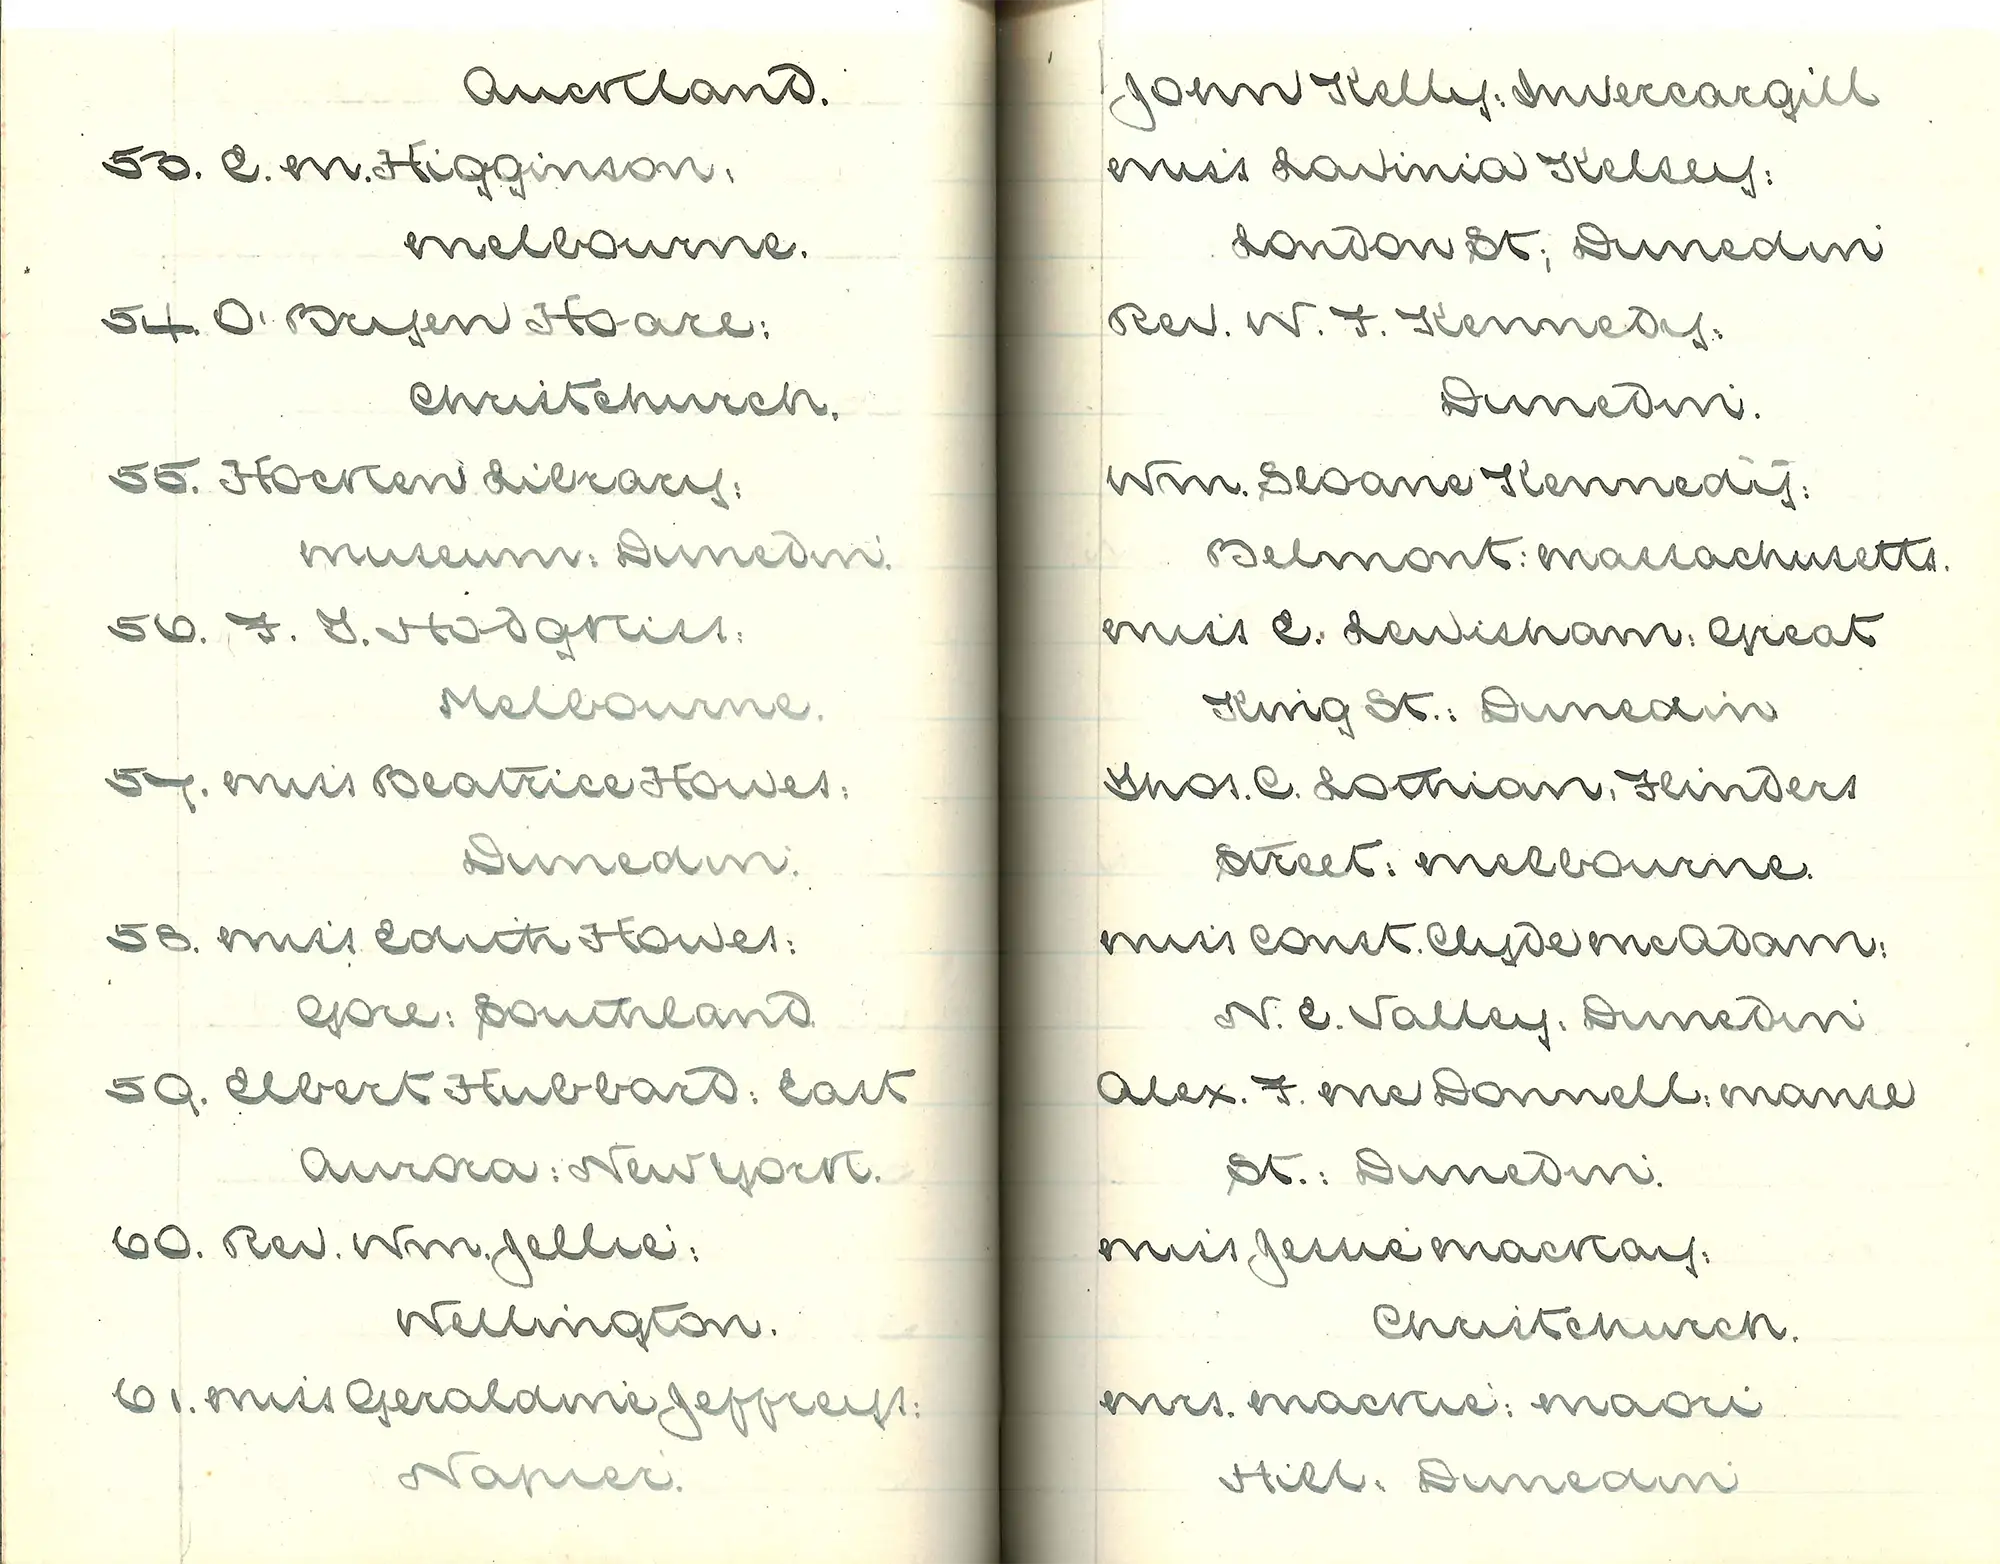 Auckland.
53. E. M. Higginson:
Melbourne.
54. O'Bryen Hoare:
Christchurch.
55. Hocken Library:
Museum: Dunedin.
56. F. J. Hodgkiss:
Melbourne.
57. Miss Beatrice Howes:
Dunedin.
58. Miss Edith Howes:
Gore: Southland
59. Elbert Hubbard: East
Aurora: New York.
60. Rev. Wm. Jellie:
Wellington.
61. Miss Geraldine Jeffreys:
Napier.
John Kelly: Invercargill
Miss Lavinia Kelsey:
London St; Dunedin
Rev. W. F. Kennedy:
Dunedin.
Wm. Sloane Kennedy:
Belmont: Massachusetts.
Miss E. Lewisham: Great
King St.: Dunedin
Thos. C. Lothian: Flinders
Street: Melbourne.
Miss Const. Clyde McAdam:
N. E. Valley: Dunedin
Alex. F. McDonnell: Manse
St.: Dunedin.
Miss Jessie Mackay:
Christchurch.
Mrs. Mackie: Maori
Hill: Dunedin